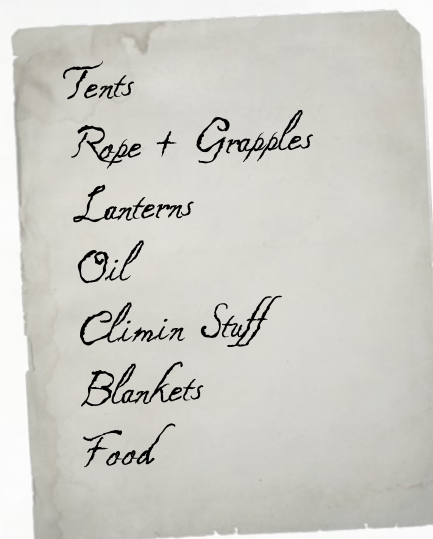 Tents
Rope + Grapples
Lanterns
Oil
Climin Stuff
Blankets
Food